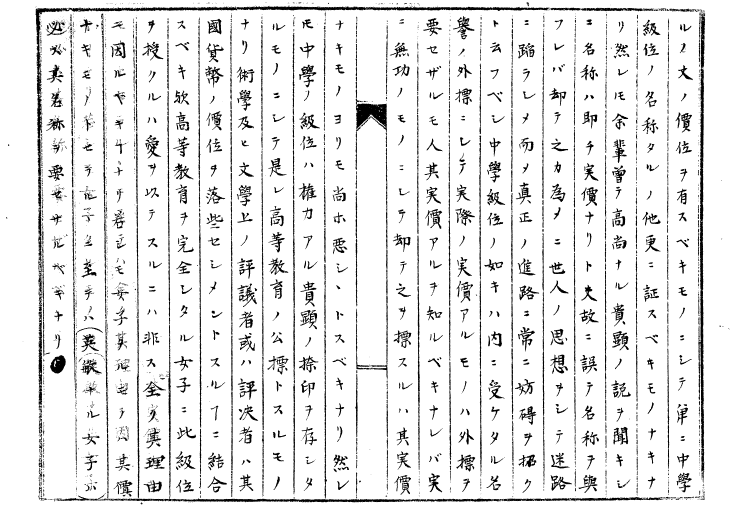 ルノ大ノ價位ヲ有スベキモノニシテ單ニ中學
級位ノ名称タルノ他更ニ証スベキモノナキナ
リ然レモ余輩曽テ高尚ナル貴顕ノ説ヲ聞キシ
ニ名称ハ即チ実價ナリト夫故ニ誤テ名称ヲ與
フレバ却テ之カ為メニ世人ノ思想ヲシテ迷路
ニ蹈ラシメ而メ真正ノ進路ニ常ニ妨碍ヲ招ク
ト云フベシ中學級位ノ如キハ内ニ受ケタル名
譽ノ外標ニシテ実際ノ実價アルモノハ外標ヲ
要セザルモ人其実價アルヲ知ルベキナレバ実
ニ無功ノモノニシテ却テ之ヲ標スルハ其実價
ナキモノヨリモ尚ホ悪シヽトスベキナリ然レ
モ中學ノ級位ハ権力アル貴顕ノ捺印ヲ存シタ
ルモノニシテ是レ高等教育ノ公標トスルモノ
ナリ術學及ヒ文學上ノ評議者或ハ評决者ハ其
國貨幣ノ價位ヲ落些セシメントスルヿニ結合
スベキ欤高等教育ヲ完全シタル女子ニ此級位
ヲ授クルハ愛ヲ以テスルニハ非ス全ク其理由
モ因ルベキ ナリ若シ 其理由 其價
ナキモノトセ 至テハ(英敏ナル女子ハ)
必ス其名称ヲ要セサルベキナリ